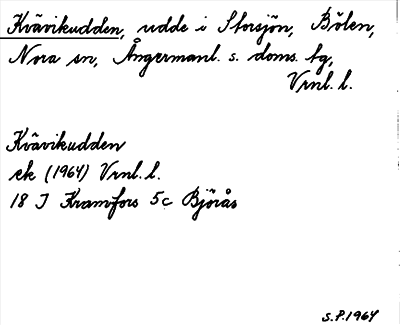 Kvävikudden, udde i Storsjön, Bölen,
Nora sn, Ångermanl. s. doms. tg,
Vrnl. l.
Kvävikudden
ek (1964) Vrnl. l.
18 J Kramfors 5c Björås
S.P. 1964